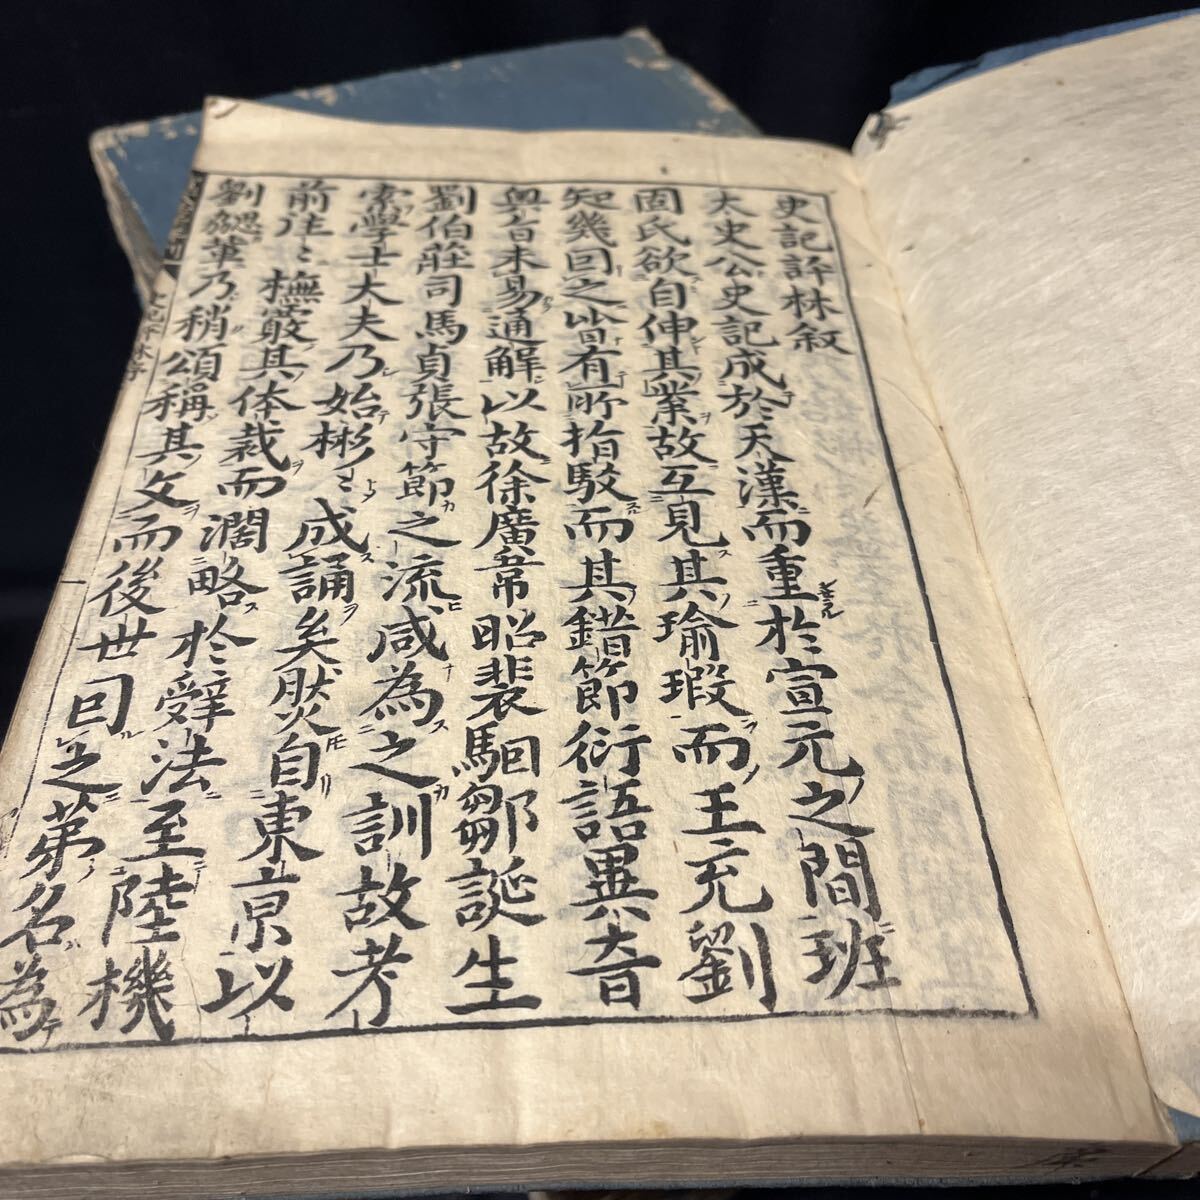 史記評林叙
太史公史記成於天漢而重於宣元之間班
固氏欲自伸其業故互見其瑜瑕而王充劉
知幾回之皆有所指駁而其錯節衍語異音
奥旨未易通解以故徐廣裴駰鄒誕生
劉伯莊司馬貞張守節之流咸為之訓故考
索學士大夫乃始彬〻成誦矣然自東京以
前往〻橅嚴其体裁而濶略於辭法至陸機
劉勰輩乃稍頌稱其文而後世回之第名為